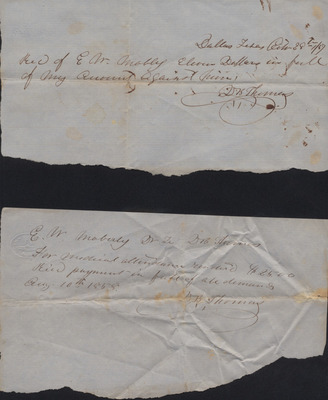 Dallas Texas Octo 28th
Recd of E. W. Mobly Eleven Dollars in full
of My Account against him
D B Thomas
E. W. Moberly Dr to
For medical attendance
Recd payment in full of all demands
Aug 10th
Thomas